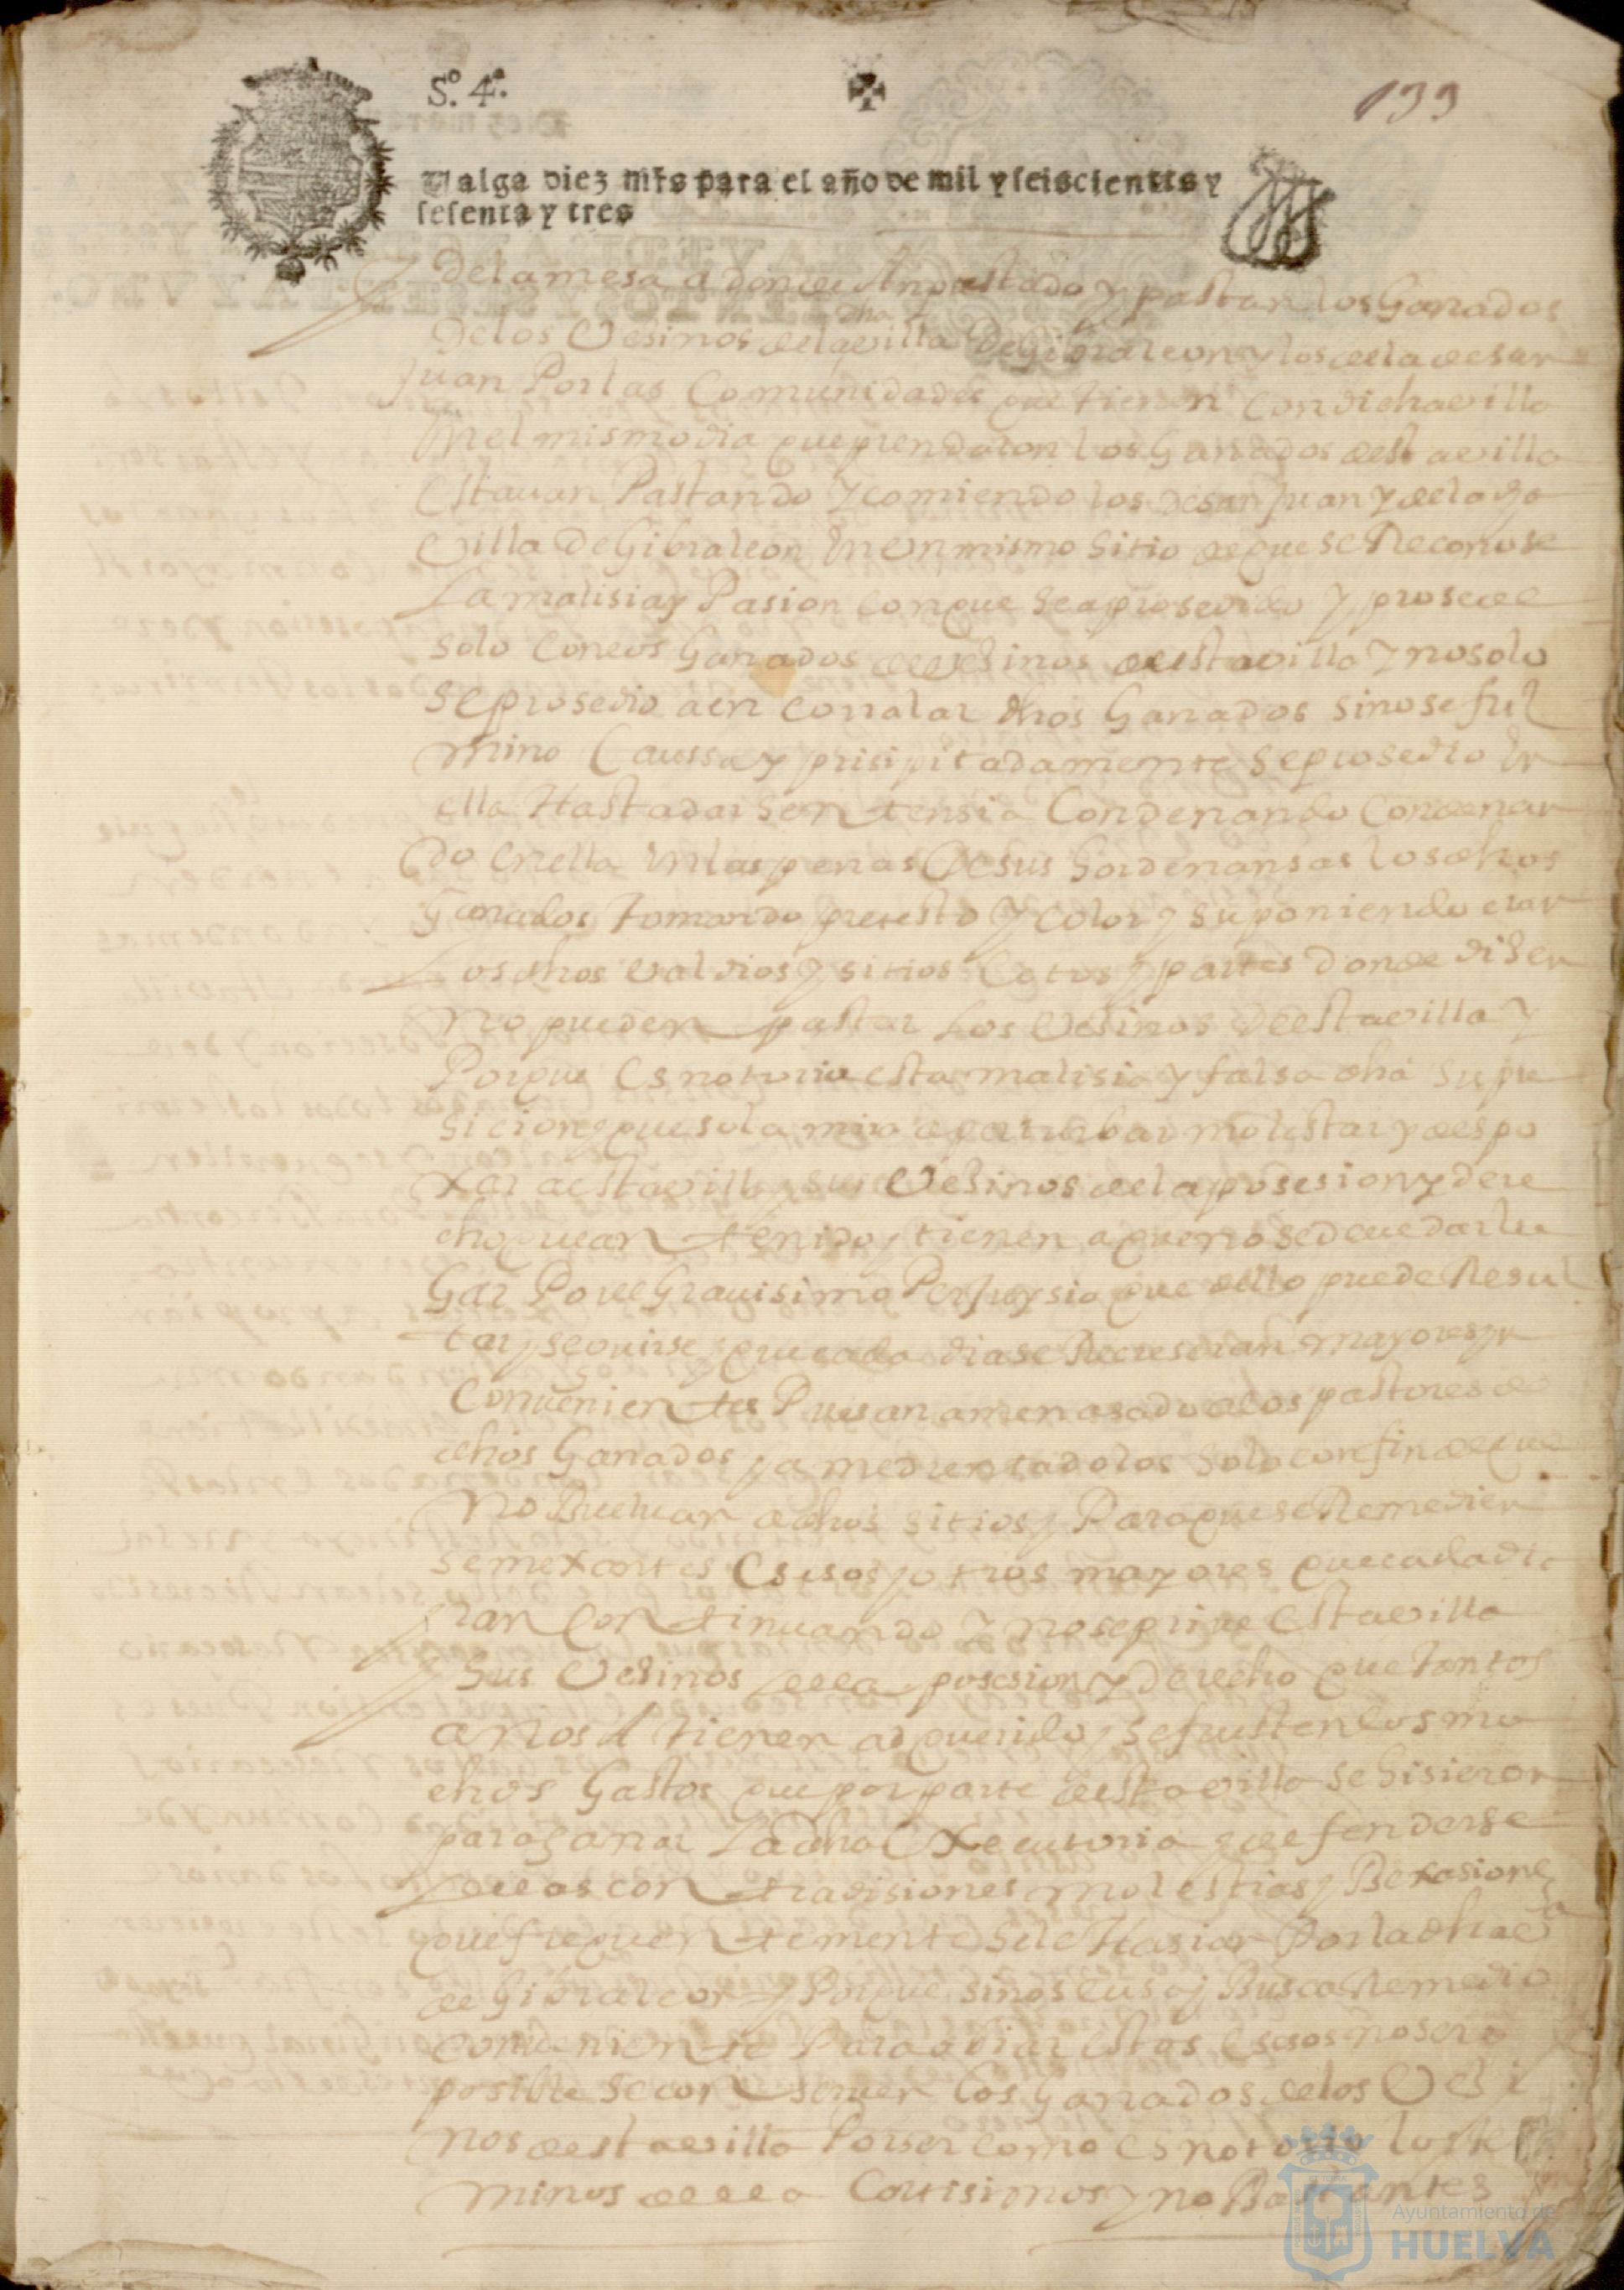 S.º 4.º
133
Valga diez mrs para el año de mil y seiscientos y
sesenta y tres
de la mesa a donde An pastado y pastan los Ganados
dha
de los Vesinos de la villa de Gibraleon y los de la de san
Juan Por las Comunidades que tienen con dicha villa
En el mismo dia que prendaron los Ganados desta villa
estauan Pastando y comiendo los de san Juan y de la dha
villa de Gibraleon En Un mismo sitio de que se Reconose
La malisia y Pasion con que se a prosedido y prosede
solo con los Ganados de Vesinos desta villa y no solo
se prosedio a en corralar dhos Ganados sino se ful
mino Caussa y prisipitadamente se prosedio En
ella Hasta dar sentensia Condenando Condenan
do en ella En las penas de sus hordenansas los dhos
Ganados tomando pretesto y color y suponiendo eran
Los dhos valdios y sitios Cotos y partes donde disen
no pueden pastar Los Vesinos desta villa y
Porque es notoria esta malisia y falsa dha supu
sicion y que solo mira a perturbar molestar y despo
xar a esta villa y sus Vesinos de la posesion y dere
cho que an tenido y tienen a que no se deue dar lu
Gar Por el Grauisimo Perjuysio que dello puede Resul
tar y seguirse y que cada dia se Recreseran mayores yn
Conuenientes Pues an amenasado a los pastores de
dhos Ganados y amedrentadolos solo con fin de que
no Bueluan a dhos sitios y Para que se Remedien
semexantes Esesos y otros mayores que cada dia
yran Continuando y no se priue Esta villa
y sus Vesinos de la posesion y derecho que tantos
años A tienen adquerido y se frusten los mu
chos Gastos que por parte desta villa se hisieron
para ganar La dha Executoria y defenderse
de las contradisiones molestias y Bexasiones
que frequentemente se le Hasian Por la dha va
de Gibraleon y Porque si no se busca Remedio
conueniente Para obiar estos Esesos no sera
posible se conseruen los Ganados de los Vesi
nos desta villa Por ser como es notorio los ter
minos de ella Cortisimos y no Bastantes
Ayuntamiento de
HUELVA